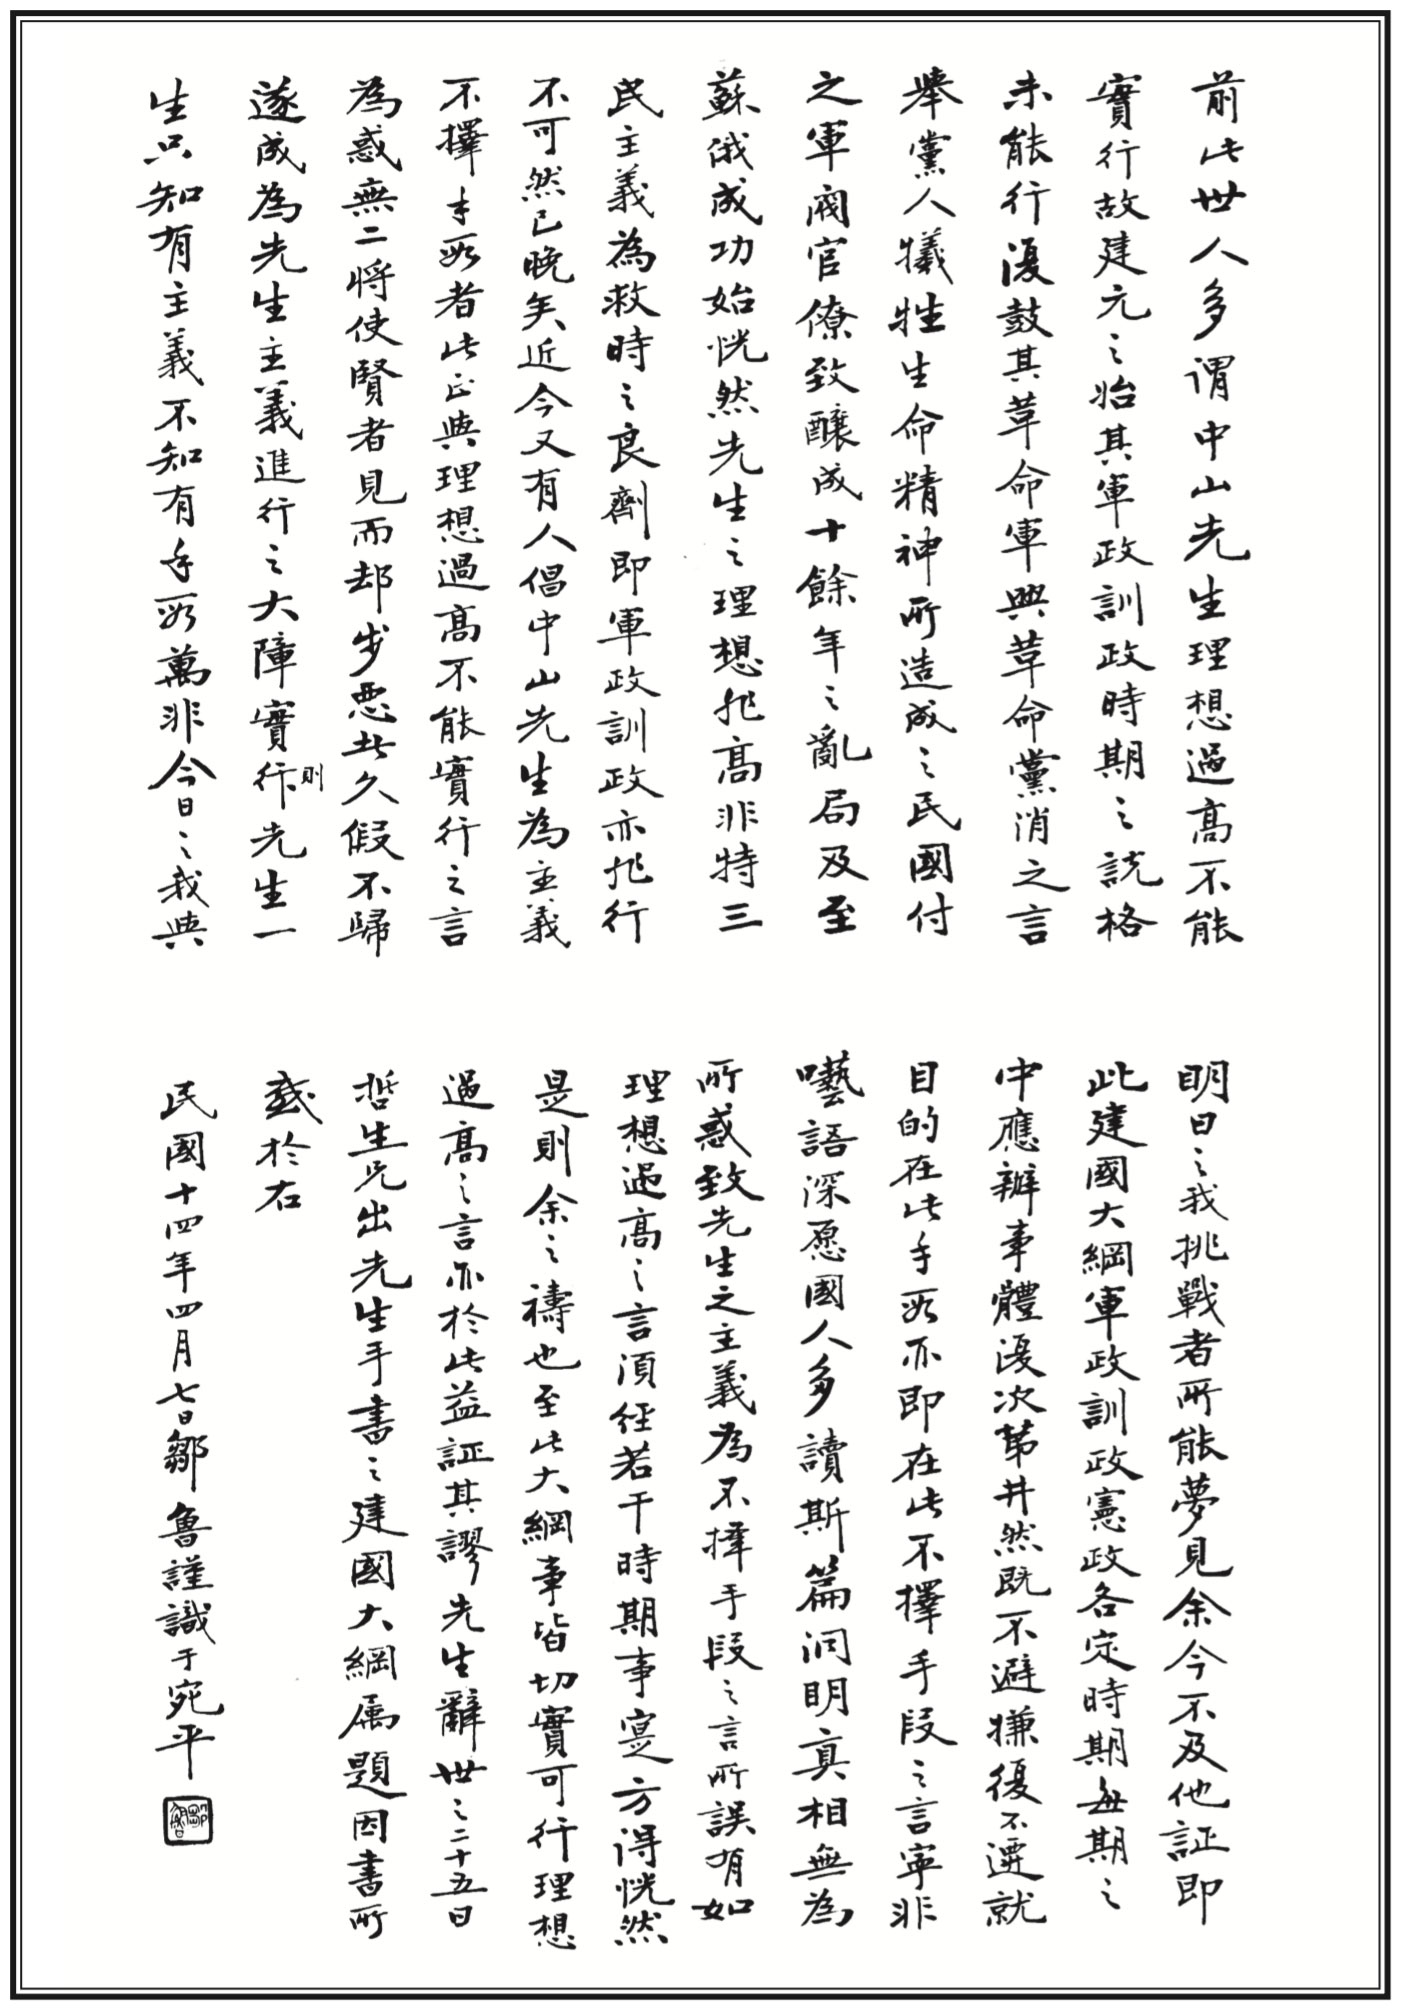 前此世人多謂中山先生理想過高不能
實行故建元之始其軍政訓政時期之説格
未能行復鼓其革命軍興革命黨消之言
舉黨人犧牲生命精神所造成之民國付
之軍閥官僚致釀成十餘年之亂局及至
蘇俄成功始恍然先生之理想非高非特三
民主義為救時之良劑即軍政訓政亦非行
不可然已晚矣近今又有人倡中山先生為主義
不擇手段者此正與理想過高不能實行之言
為惑無二將使賢者見而却步惡者久假不歸
遂成為先生主義進行之大障實行則先生一
生只知有主義不知有手段萬非今日之我與
明日之我挑戰者所能夢見余今不及他証即
此建國大綱軍政訓政憲政各定時期每期之
中應辦事體復次第井然既不避嫌復不遷就
目的在此手段亦即在此不擇手段之言寧非
囈語深愿國人多讀斯篇洞明真相無為
所惑致先生之主義為不擇手段之言所誤有如
理想過高之言須經若干時期事寔方得恍然
是則余之禱也至此大綱事皆切實可行理想
過高之言亦於此益証其謬先生辭世之二十五日
哲生兄出先生手書之建國大綱属題因書所
感於右
民國十四年四月七日鄒魯謹識于宛平
鄒魯